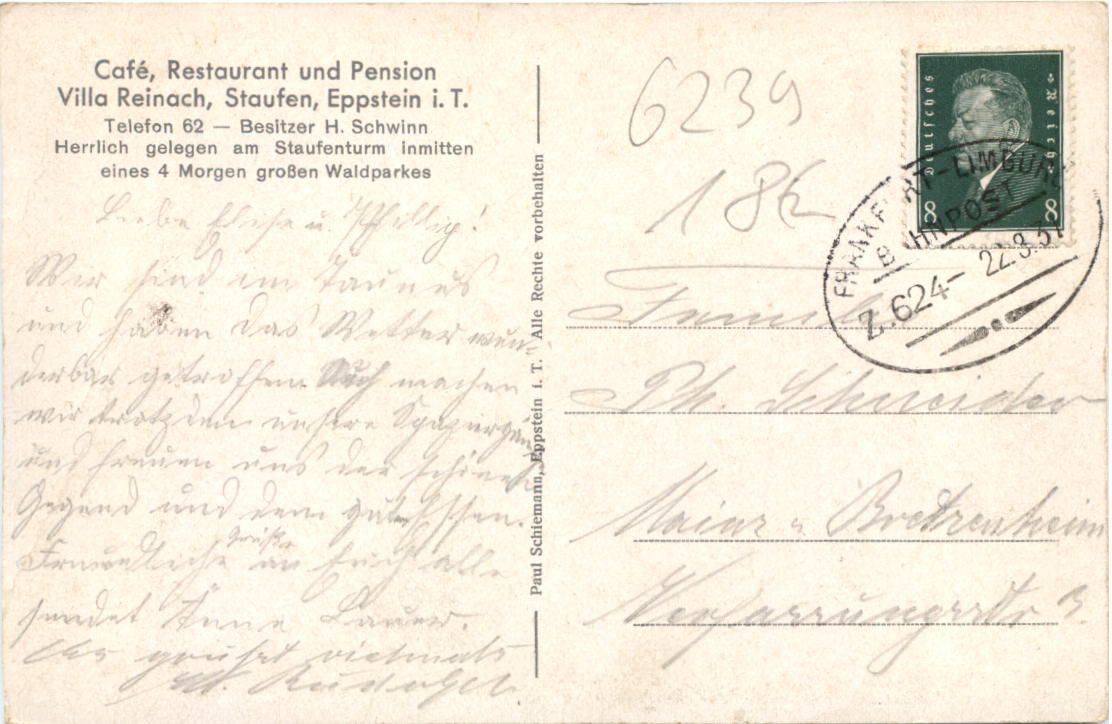 Café, Restaurant und Pension
Villa Reinach, Staufen, Eppstein i. T.
Telefon 62 — Besitzer H. Schwinn
Herrlich gelegen am Staufenturm inmitten
eines 4 Morgen großen Waldparkes
Liebe Elise u. Phillip!
Wir sind im Taunus
und haben das Wetter wun-
derbar getroffen. Auch machen
wir trotzdem unsere
und freuen uns der schönen
Gegend und dem guten Essen.
Freundliche Grüße an Euch alle
sendet Änne Lauer.
grüßt vielmals
Paul Schiemann, Eppstein i. T. Alle Rechte vorbehalten
6239
18
Deutsches Reich
8 8
FRANKFURT-LIMBURG
BAHNPOST
Z.624- 22.8.31
Familie
Ph. Schneider
Mainz Bretzenheim
3.